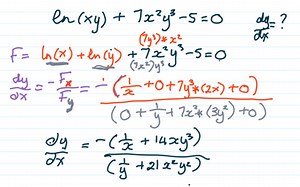 ln(xy) + 7x²y³ - 5 = 0
dy/dx = ?
(7y³)*x²
F = ln(x) + ln(y) + 7x²y³ - 5 = 0
(7x²)y³
dy/dx = -Fx/Fy = -(1/x + 0 + 7y³*(2x) + 0)/(0 + 1/y + 7x²*(3y²) + 0)
dy/dx = -(1/x + 14xy³)/(1/y + 21x²y²)